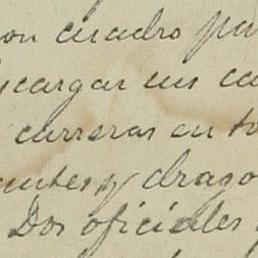 on cuadro pa
scargar un ca
carreras en to
antes y drago
Dos oficiales